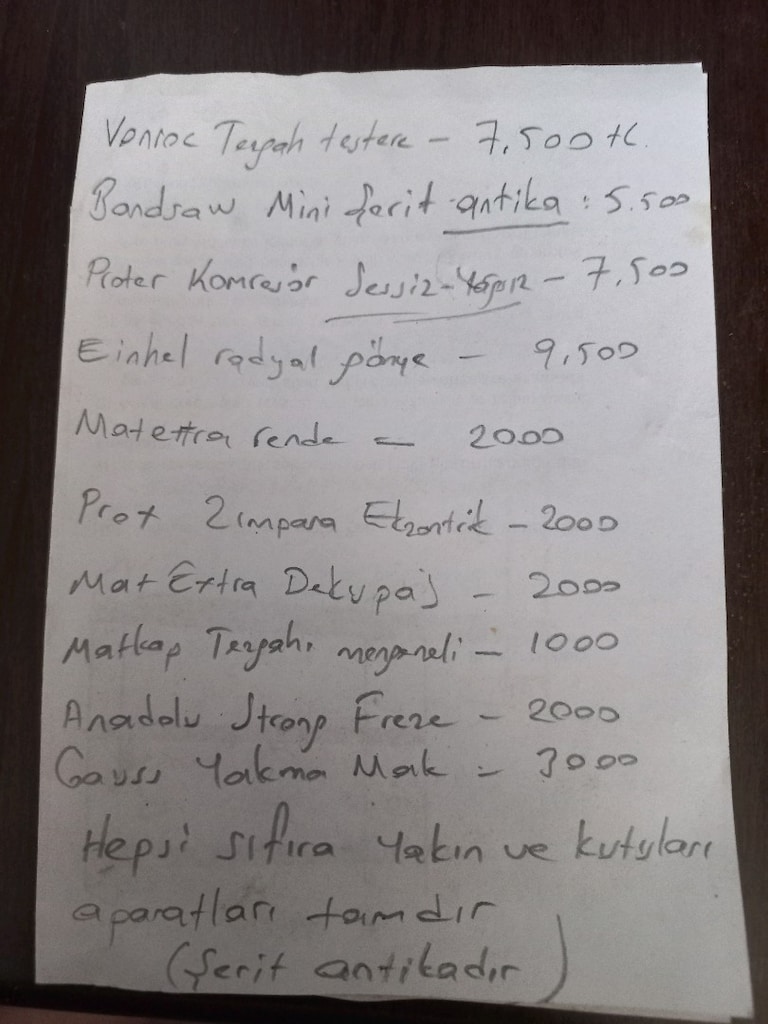 Vonroc Tezgah testere - 7.500 tl.
Bandsaw Mini şerit antika : 5.500
Proter Komresör Sessiz - - 7.500
Einhel radyal gönye - 9.500
Mat extra rende - 2000
Prox Zımpara - 2000
Mat Extra Dekupaj - 2000
Matkap Tezgahı mengeneli - 1000
Anadolu Strong Freze - 2000
Gauss Yakma Mak - 3000
Hepsi sıfıra yakın ve kutuları
aparatları tamdır
(Şerit antikadır)